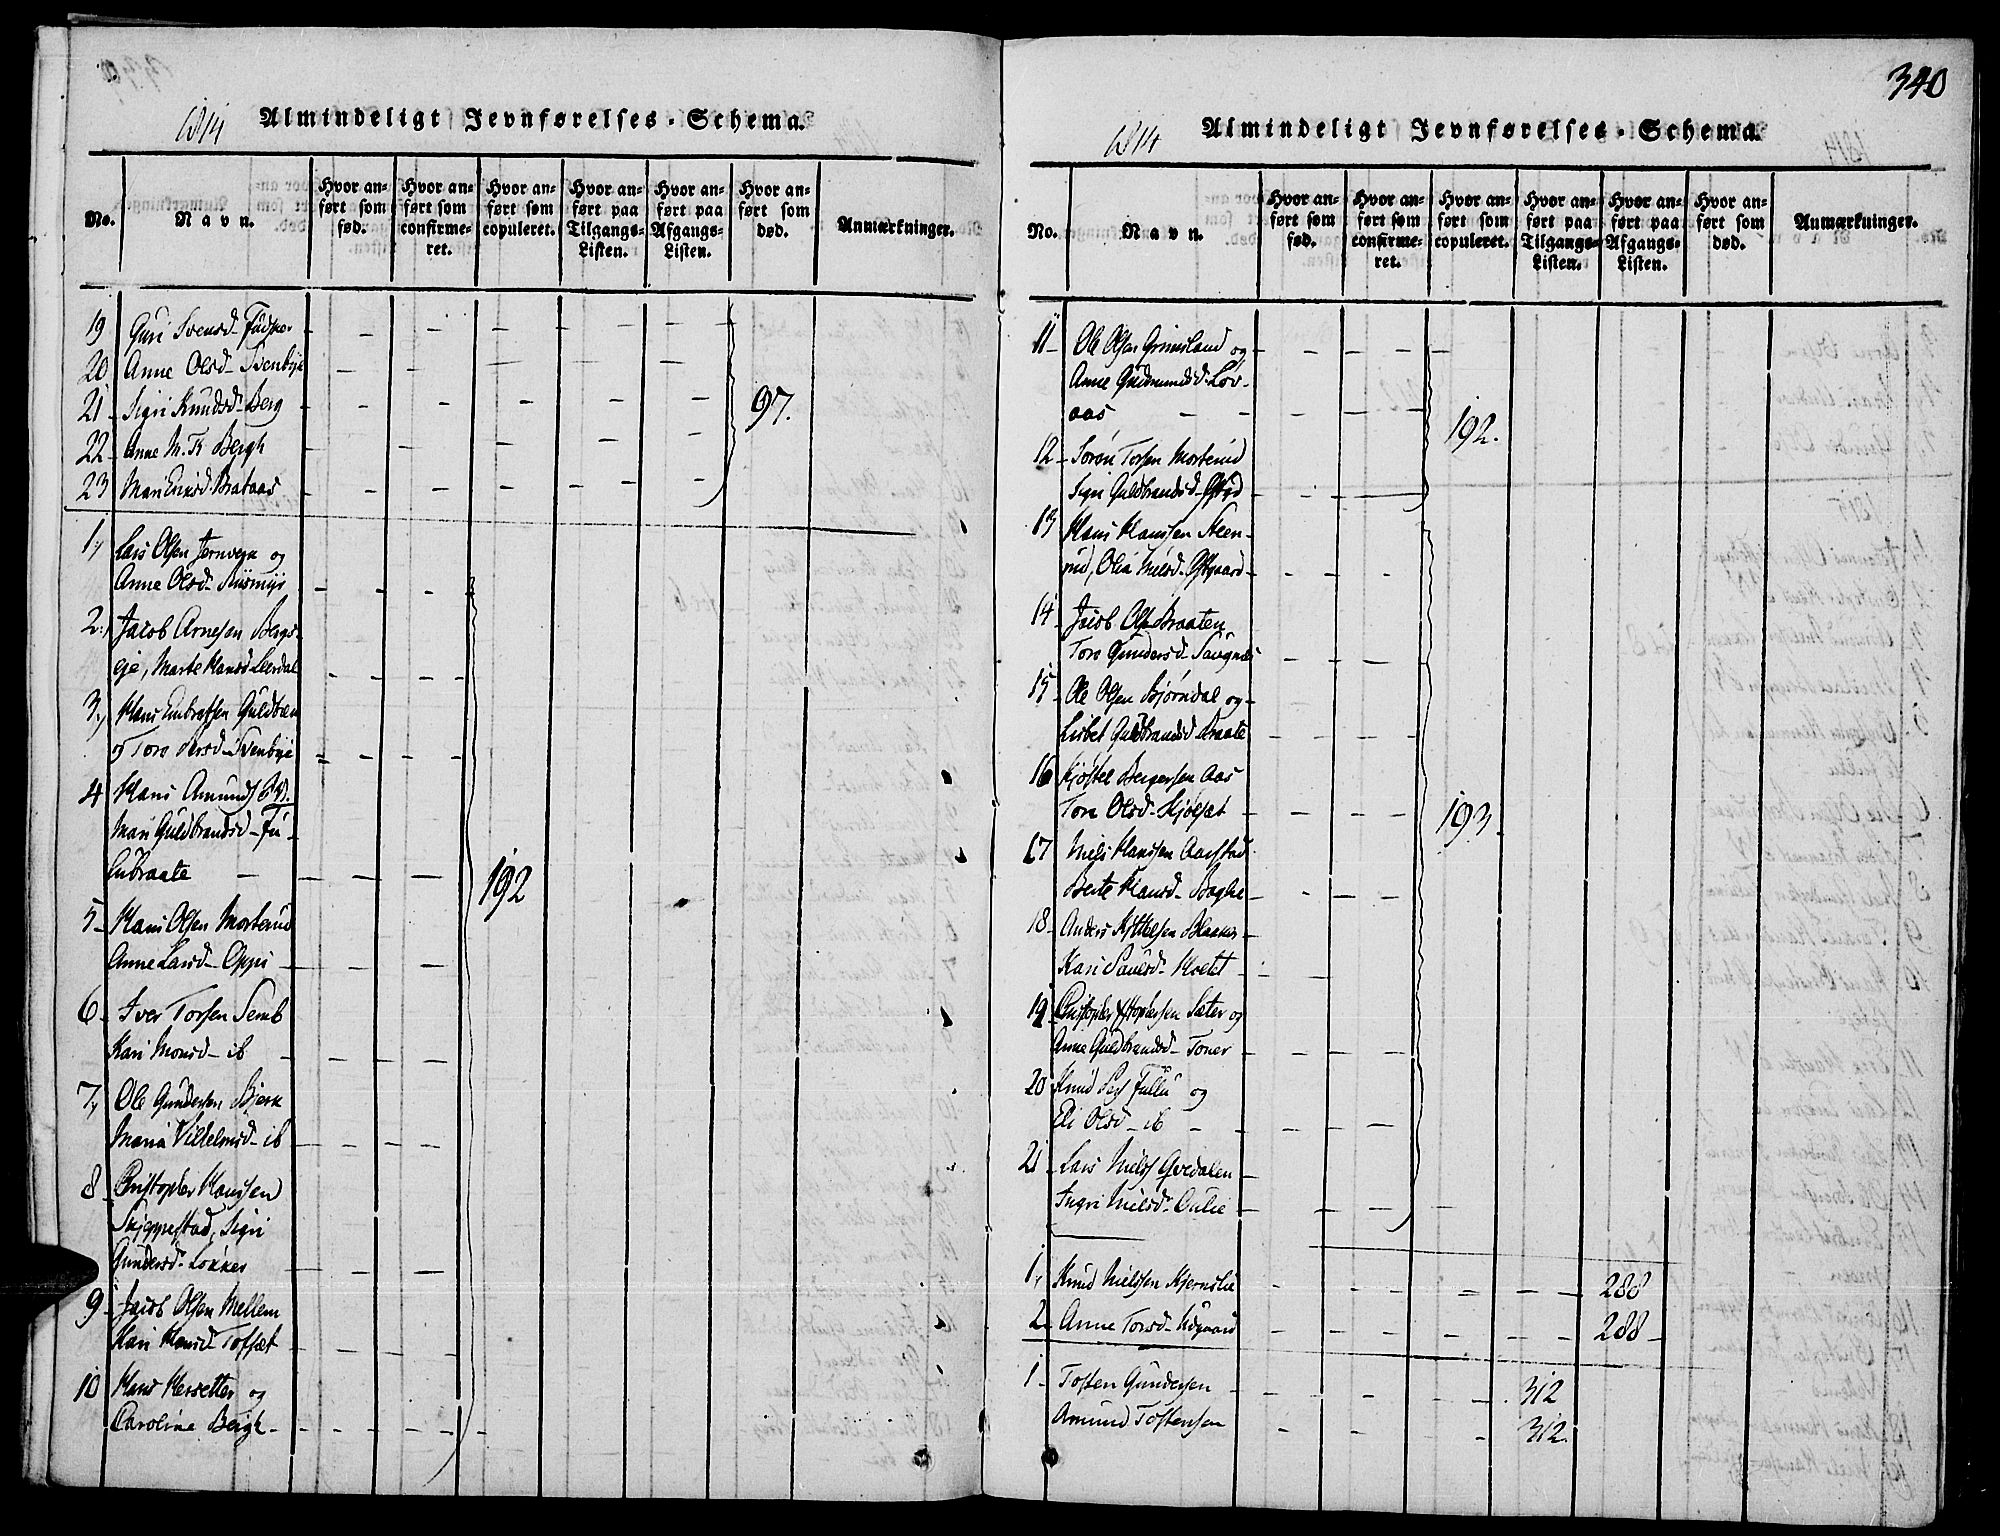 1814 Almindeligt Jevnførelses-Schema.
No. Navn. Hvor anført som fød. Hvor anført som confirmeret. Hvor anført som copuleret. Hvor anført paa Tilgangs-Listen. Hvor anført paa Afgangs-Listen. Hvor anført som død. Anmærkninger.
19 Guri Svensd-
20 Anne Olsd- Svenbye
21 Sigri Knudsd- Berg 97.
22 Anne M. K. Bergh
23 Mari Ericsd- Brataas
1, Lars Olsen Jernverk og
Anne Olsd-
2, Jacob Arnesen Bergs-
eje, Marte Hansd Leerdal
3, Hans Embretsen
og Tore Svenbye
4 Hans Amunds
Mari Guldbrandsd- Fu-
lubraate 192
5- Hans Olsen Morterud
Anne Larsd- Oppi
6- Iver Torsen Semb
Kari Monsd- ib
7, Ole Gundersen Bjerk
Maria Vilhelmsd- ib
8 Christopher Hansen
Skjeppestad, Sigri
Gundersd- Lokker
9- Jacob Olsen Mellem
Kari Hansd Toffset
10 Hans Hersetter og
Caroline Bergh
340
1814 Almindeligt Jevnførelses-Schema.
No. Navn. Hvor anført som fød. Hvor anført som confirmeret. Hvor anført som copuleret. Hvor anført paa Tilgangs-Listen. Hvor anført paa Afgangs-Listen. Hvor anført som død. Anmærkninger.
11- Ole Olsen Grimsland og
Anne Gudmundsd- Løv-
aas 192.
12- Søren Torsen Morterud
Sigri Guldbrandsd-
13 Hans Hanssen Steen-
rud, Olia Nielsd- Østgaard
14 Jacob Ols Braaten
Tore Gundersd-
15 Ole Olsen Bjørndal og
Lisbet Guldbrandsd Braate
16 Kjøstel Bergersen Aas
Tore Olsd- Kjølset 193.
17 Niels Hanssen Aarstad
Berte Hansd- Baghe
18- Anders Kittelsen Blaaker
Kari Paulsd-
19 Christopher Sæter og
Anne Guldbrandsd- Toner
20 Knud Fullu og
Eli Olsd- ib
21 Lars Niels Gvedalen
Ingri Nielsd- Oulie
1, Knud Nielssen Kjernslie 288
2 Anne Torsd- 288
1- Tosten Gundersen 312
Amund Tostensen 312.